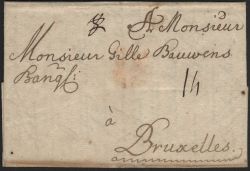 A Monsieur
Monsieur Gille Bauwens
Banqr:
14
à
Bruxelles.